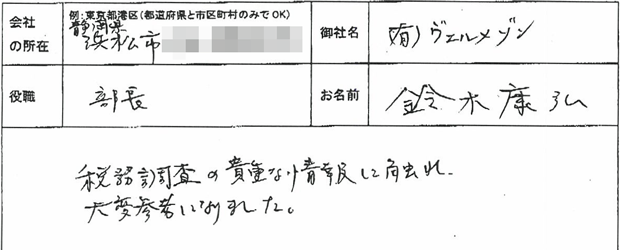 会社の所在
例:東京都港区(都道府県と市区町村のみでOK)
静岡県
浜松市
御社名
(有)ヴェルメゾン
役職
部長
お名前
鈴木康弘
税務調査の貴重な情報に触れ、
大変参考になりました。